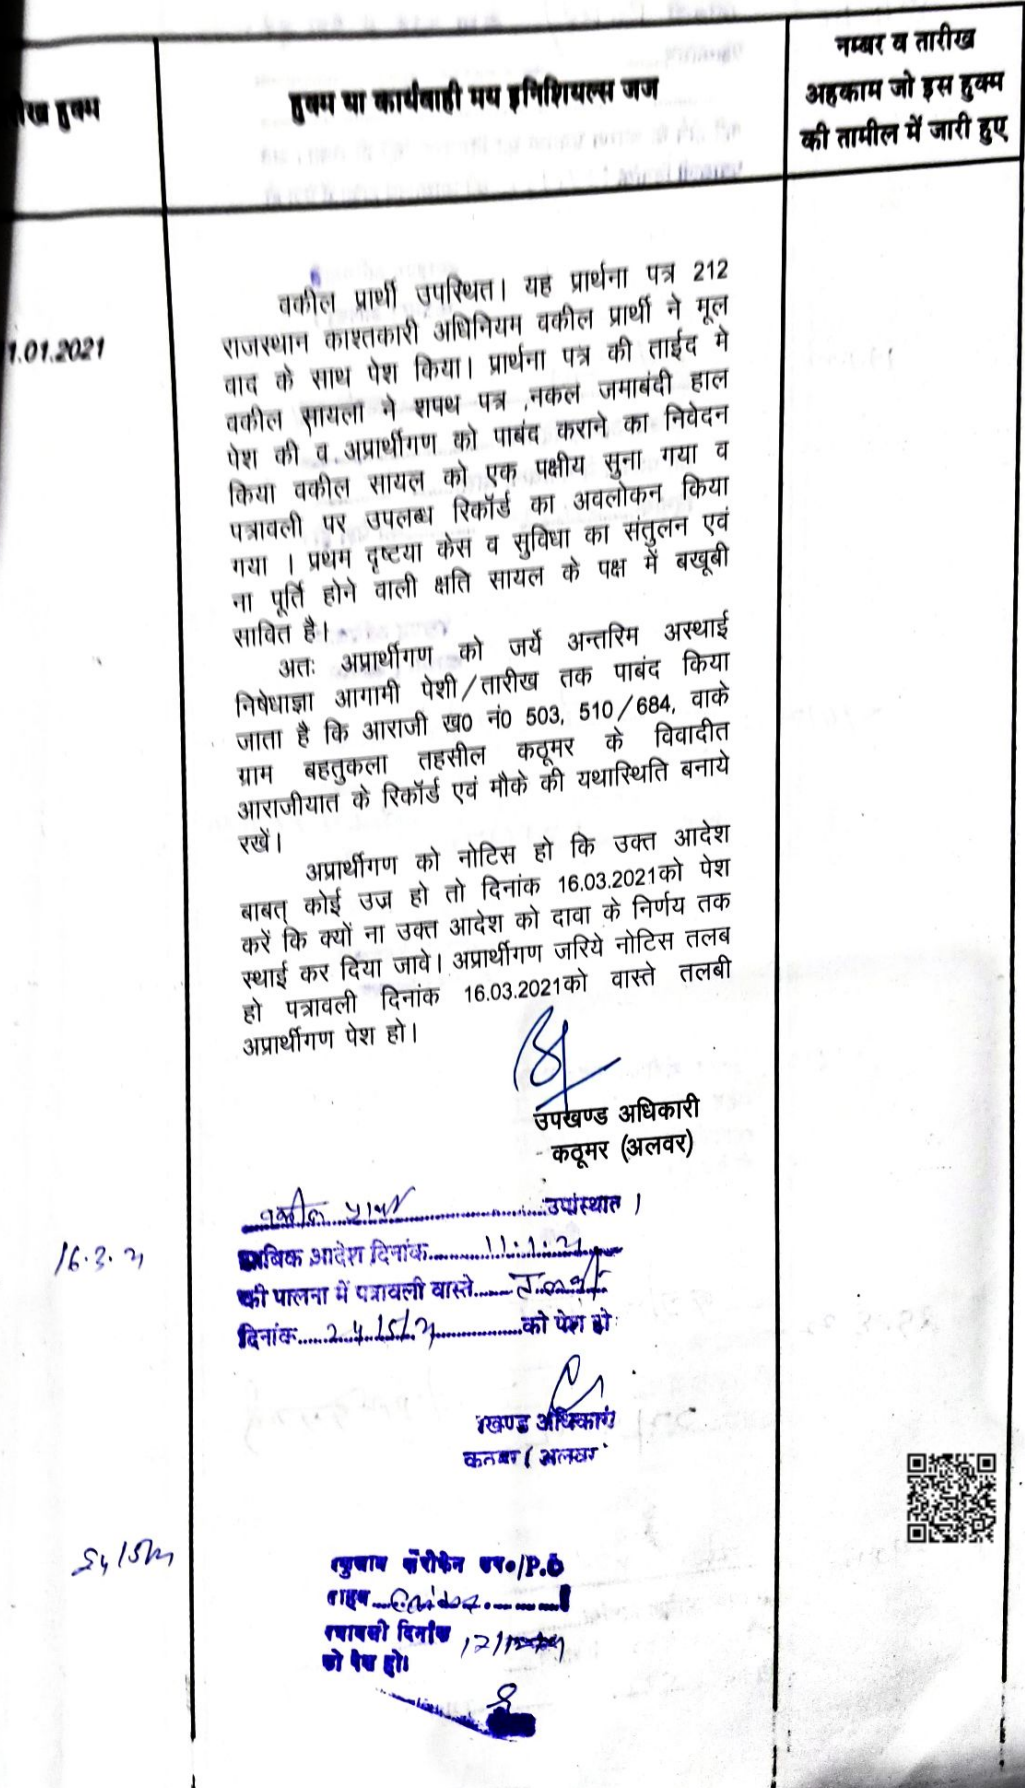 हुक्म
हुक्म या कार्यवाही मय इनिशियल्स जज
नम्बर व तारीख
अहकाम जो इस हुक्म
की तामील में जारी हुए
1.01.2021
वकील प्रार्थी उपस्थित। यह प्रार्थना पत्र 212
राजस्थान काश्तकारी अधिनियम वकील प्रार्थी ने मूल
वाद के साथ पेश किया। प्रार्थना पत्र की ताईद मे
वकील सायला ने शपथ पत्र ,नकल जमाबंदी हाल
पेश की व अप्रार्थीगण को पाबंद कराने का निवेदन
किया वकील सायल को एक पक्षीय सुना गया व
पत्रावली पर उपलब्ध रिकॉर्ड का अवलोकन किया
गया । प्रथम दृष्टया केस व सुविधा का संतुलन एवं
ना पूर्ति होने वाली क्षति सायल के पक्ष में बखूबी
सावित है।
अतः अप्रार्थीगण को जर्ये अन्तरिम अस्थाई
निषेधाज्ञा आगामी पेशी/तारीख तक पाबंद किया
जाता है कि आराजी ख0 नं0 503, 510/684, वाके
ग्राम बहतुकला तहसील कठूमर के विवादीत
आराजीयात के रिकॉर्ड एवं मौके की यथास्थिति बनाये
रखें।
अप्रार्थीगण को नोटिस हो कि उक्त आदेश
बाबत् कोई उज्र हो तो दिनांक 16.03.2021को पेश
करें कि क्यों ना उक्त आदेश को दावा के निर्णय तक
स्थाई कर दिया जावे। अप्रार्थीगण जरिये नोटिस तलब
हो पत्रावली दिनांक 16.03.2021को वास्ते तलबी
अप्रार्थीगण पेश हो।
उपखण्ड अधिकारी
कठूमर (अलवर)
16.3.21
वकील प्रार्थी उपस्थित।
साबिक आदेश दिनांक 11.1.21
की पालना में पत्रावली वास्ते तलबी
दिनांक 24/5/21 को पेश हो
खण्ड अधिकारी
कठूमर (अलवर
P.O
दिनांक
को पेश हो।